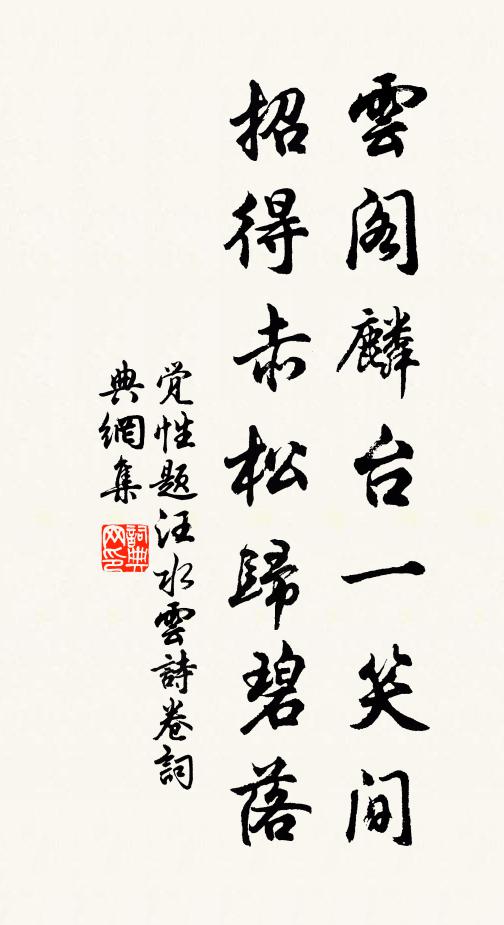 雲閣麟台一笑间
招得赤松歸碧落
觉性题汪水雲詩卷詞
典網集
詞典
网印